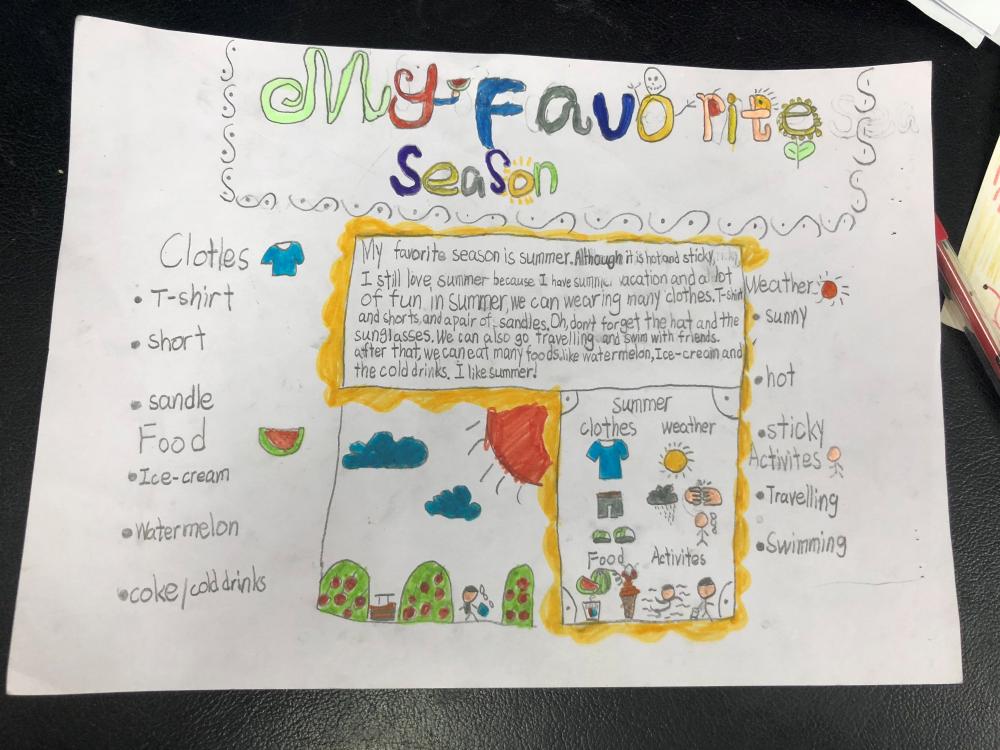 My Favorite
Season
Clotles
• T-shirt
• short
• sandle
Food
• Ice-cream
• Watermelon
• coke/cold drinks
My favorite season is summer. Although it is hot and sticky,
I still love summer because I have summer vacation and a lot
of fun. in Summer, we can wearing many clothes. T-shirt
and shorts, and a pair of sandles. Oh, don't forget the hat and the
sunglasses. We can also go travelling and swim with friends.
after that, we can eat many foods. like watermelon, Ice-cream and
the cold drinks. I like summer!
summer
clothes weather
Food Activites
Weather
• sunny
• hot
• sticky
Activites
• Travelling
• Swimming